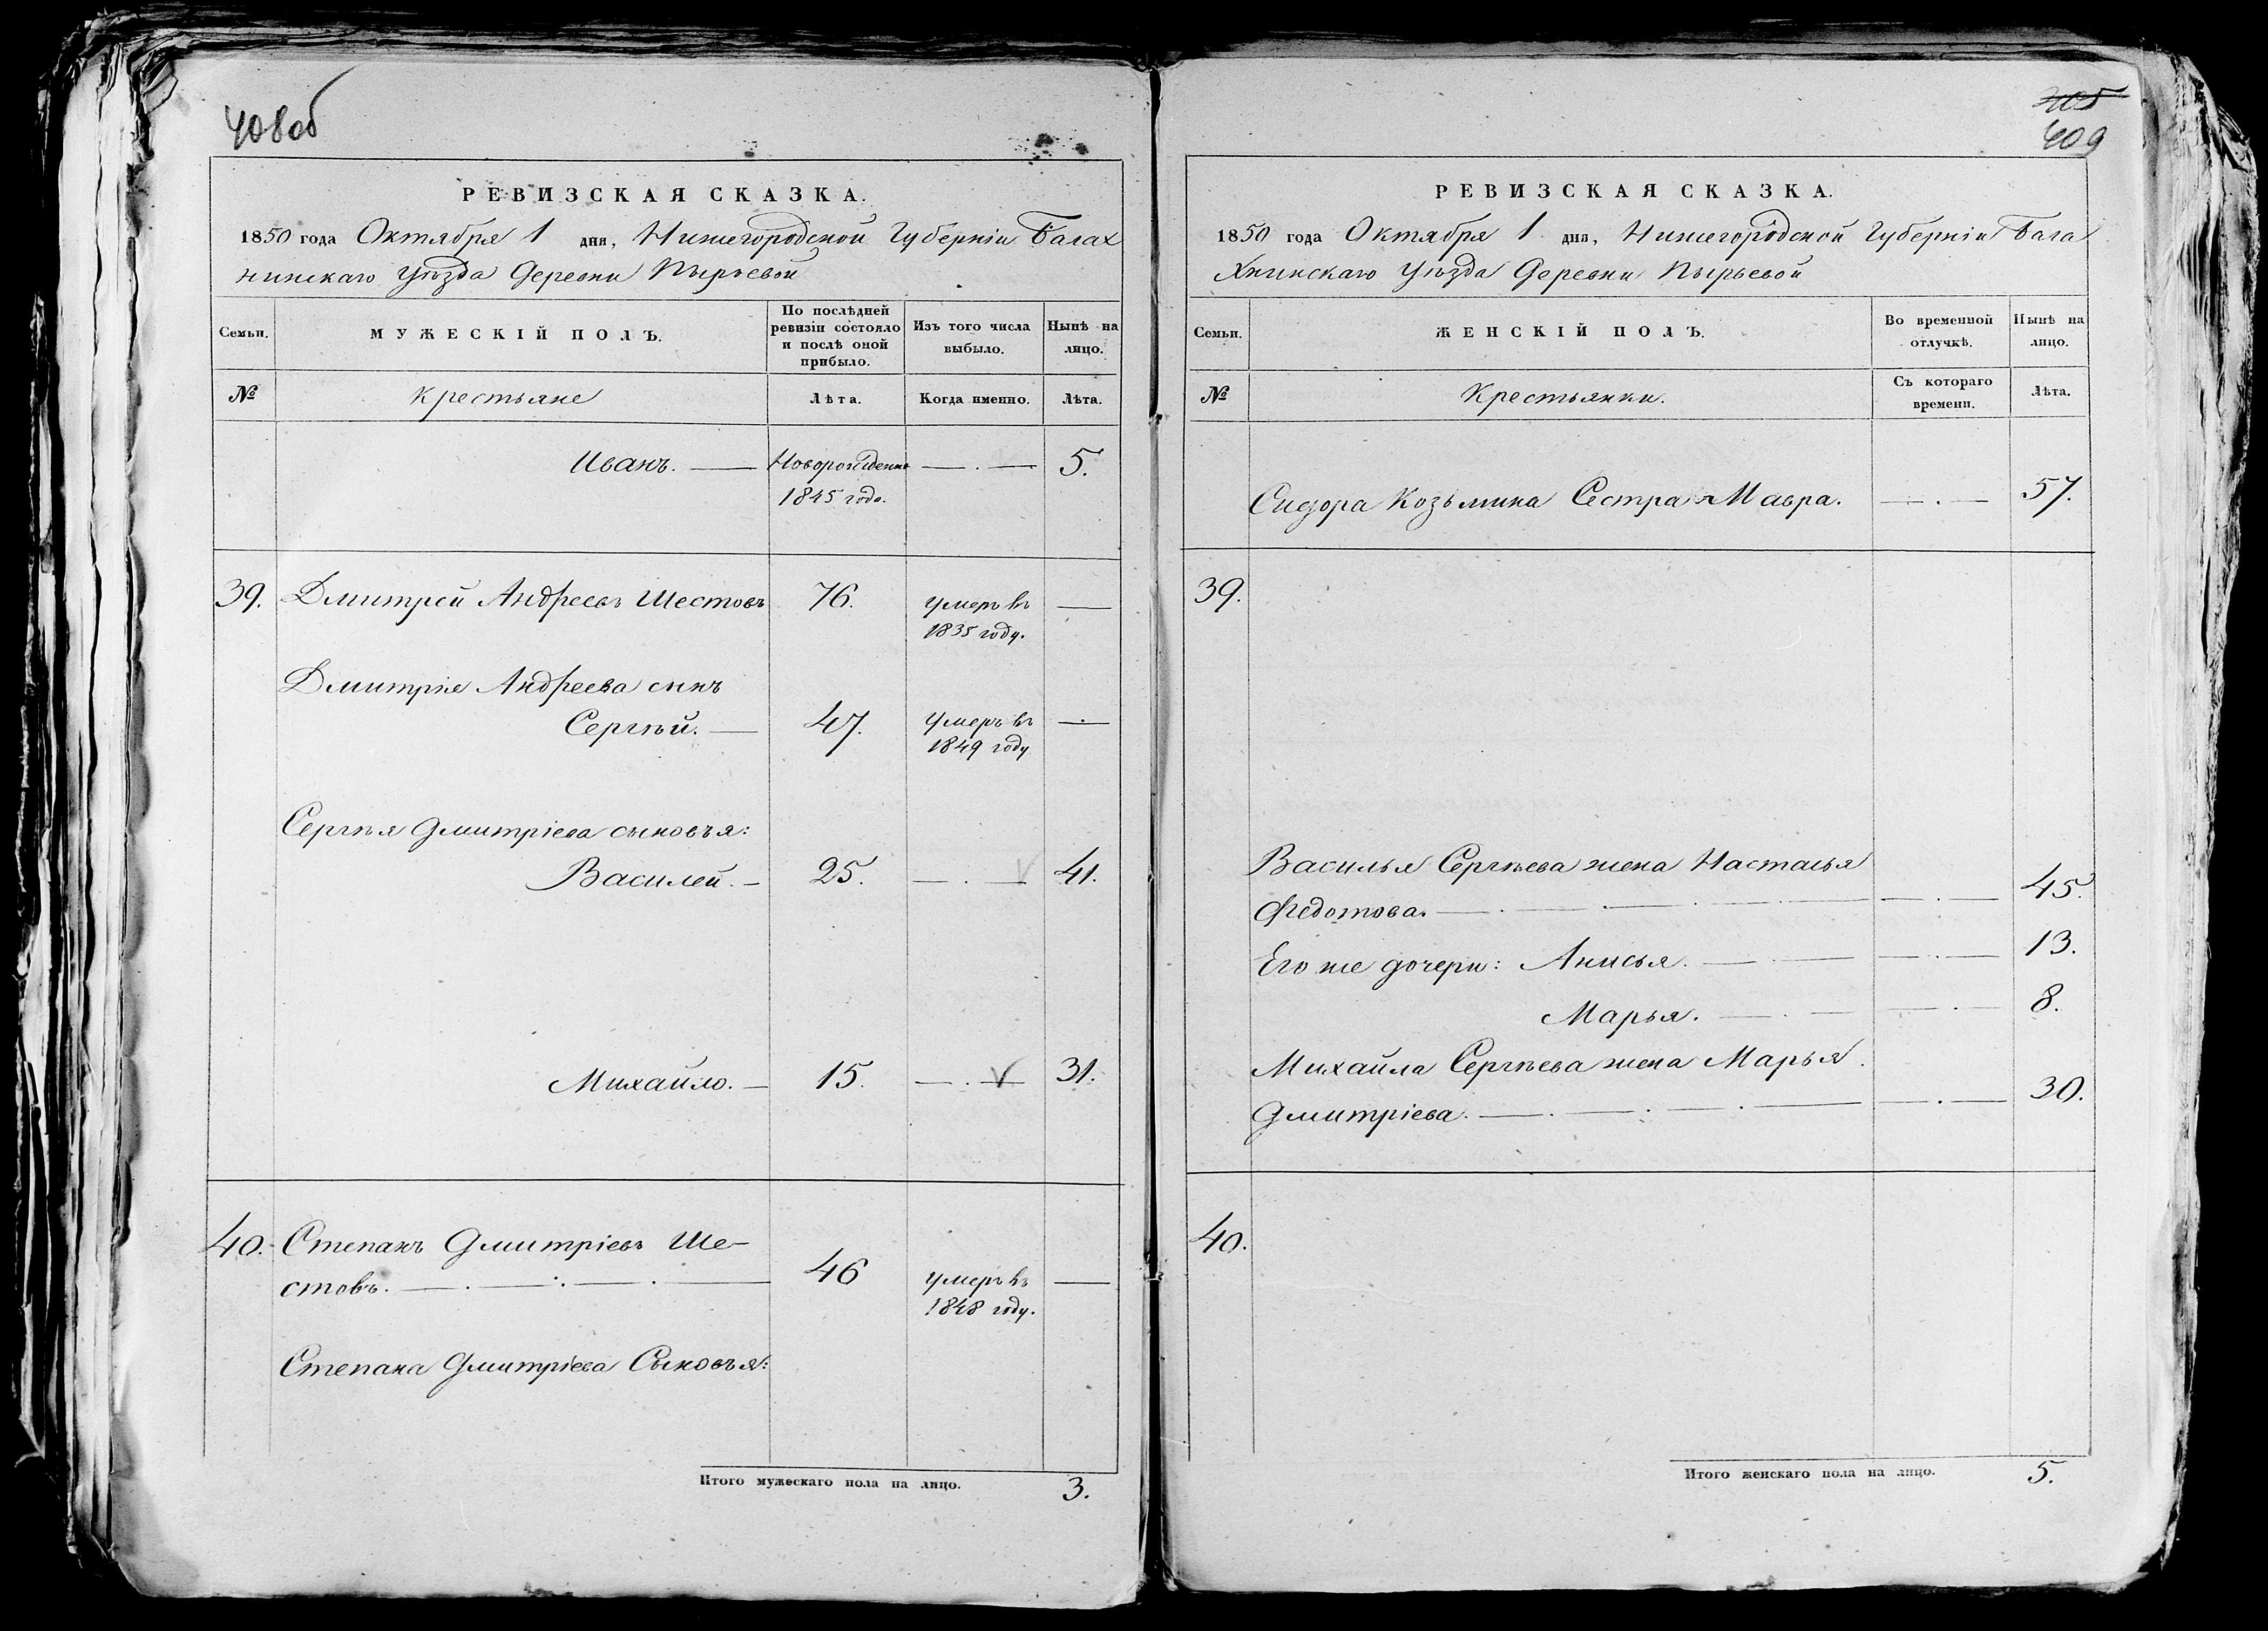 408об
РЕВИЗСКАЯ СКАЗКА.
1850 года Октября 1 дня, Нижегородской Губерніи Балах
нинскаго Уѣзда Деревни Пырьевой
Семьи.
МУЖЕСКІЙ ПОЛЪ.
По послѣдней
ревизіи состояло
и послѣ оной
прибыло.
Изъ того числа
выбыло.
Нынѣ на
лицо.
№
Крестьяне
Лѣта.
Когда именно.
Лѣта.
Иванъ. — Новорожденн — . — 5.
1845 года.
39. Дмитрей Андреевъ Шестовъ 76. умеръ въ —
1835 году.
Дмитрія Андреева сынъ
Сергѣй. — 47. Умеръ въ —
1849 году
Сергѣя Дмитріева сыновья:
Василей. — 25. — . — 41.
Михайло. — 15. — . — 31.
40. Степанъ Дмитріевъ Ше-
стовъ. — 46 умеръ въ —
1848 году.
Степана Дмитріева Сыновья:
Итого мужескаго пола на лицо. 3.
405
409
РЕВИЗСКАЯ СКАЗКА.
1850 года Октября 1 дня, Нижегородской Губерніи Бала
хнинскаго Уѣзда Деревни Пырьевой
Семьи.
ЖЕНСКІЙ ПОЛЪ.
Во временной
отлучкѣ.
Нынѣ на
лицо.
№
Крестьянки.
Съ котораго
времени.
Лѣта.
Сидора Козьмина Сестра Мавра. — . — 57.
39.
Василья Сергѣева жена Настасья
Федотова. — . — 45.
Его же дочери: Анисья. — . — 13.
Марья. — . — 8.
Михайла Сергѣева жена Марья
Дмитріева. — . — 30.
40.
Итого женскаго пола на лицо. 5.